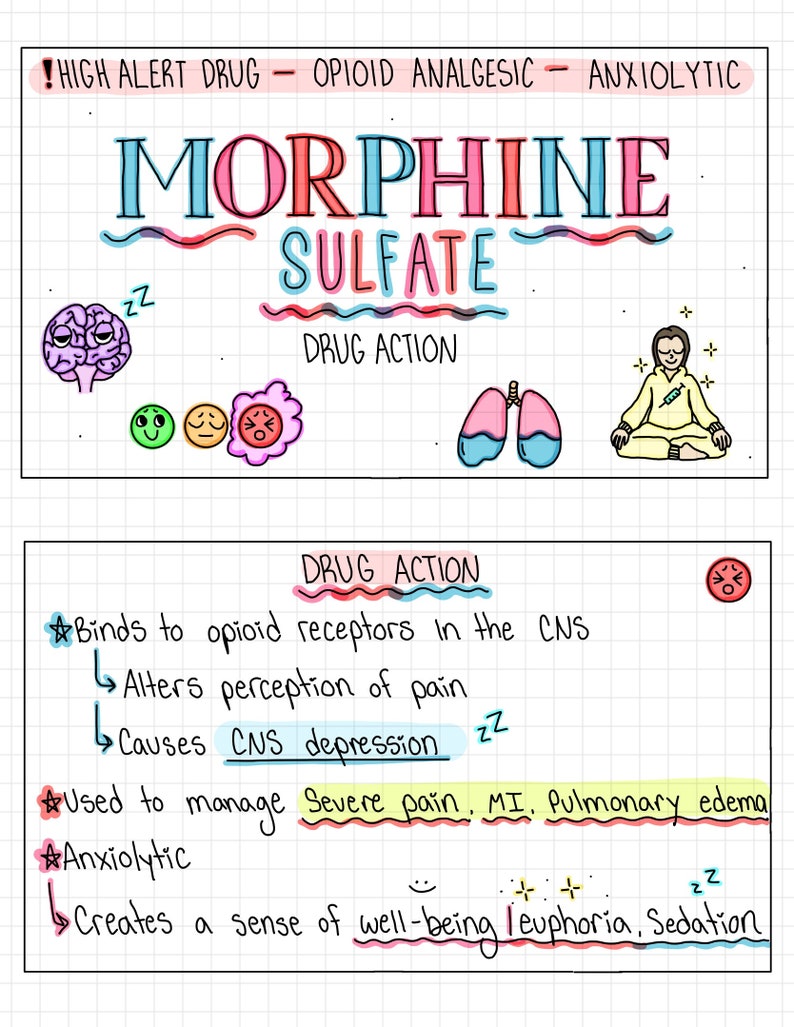 !HIGH ALERT DRUG — OPIOID ANALGESIC — ANXIOLYTIC
MORPHINE
SULFATE
DRUG ACTION
zz
DRUG ACTION
☆Binds to opioid receptors in the CNS
↳Alters perception of pain
↳Causes CNS depression zz
☆Used to manage Severe pain, MI, Pulmonary edema
☆Anxiolytic
zz
↳Creates a sense of well-being | euphoria, Sedation